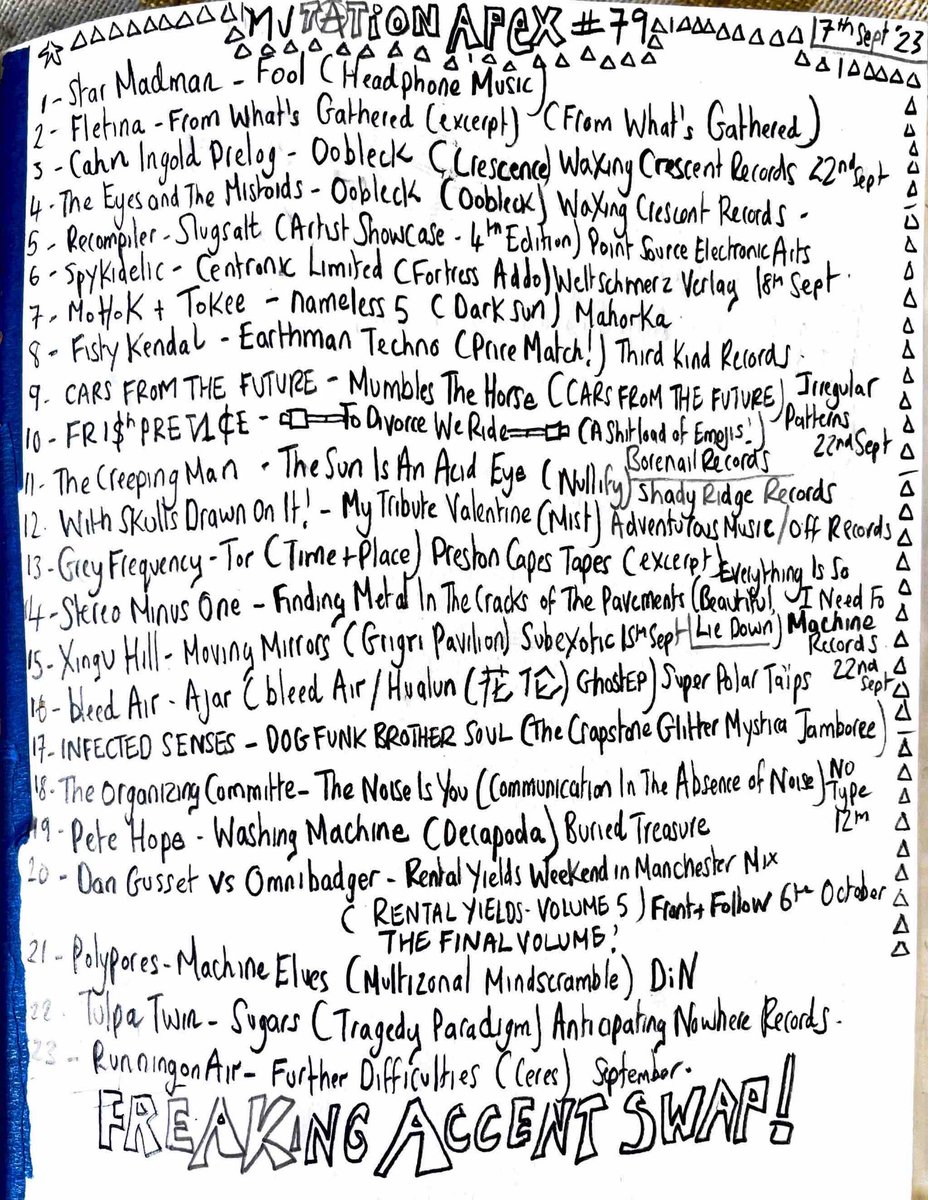 MUTATION APEX #79 17th Sept '23
1 - Star Madman - Fool (Headphone Music)
2 - Fletina - From What's Gathered (excerpt) (From What's Gathered)
3 - Cahn Ingold Prelog - Oobleck (Crescence) Waxing Crescent Records 22nd Sept
4 - The Eyes and The Mistoids - Oobleck (Oobleck) Waxing Crescent Records -
5 - Recompiler - Slugsalt (Artist Showcase - 4th Edition) Point Source Electronic Arts
6 - Spykidelic - Centronix Limited (Fortress Addo) Weltschmerz Verlag 18th Sept
7 - MoHoK + ToKee - nameless 5 (Dark Sun) Mahorka
8 - Fisty Kendal - Earthman Techno (Price Match!) Third Kind Records
9 - CARS FROM THE FUTURE - Mumbles The Horse (CARS FROM THE FUTURE) Irregular
Patterns
22nd Sept
10 - To Divorce We Ride (A Shitload of Emojis!)
Borenail Records
11 - The Creeping Man - The Sun Is An Acid Eye (Nullify) Shady Ridge Records
12 - With Skulls Drawn On It! - My Tribute Valentine (Mist) Adventurous Music/Off Records
13 - Grey Frequency - Tor (Time + Place) Preston Capes Tapes (excerpt)
14 - Stereo Minus One - Finding Metal In The Cracks of The Pavements (Everything Is So
Beautiful, I Need To
Lie Down) Machine
Records
22nd
Sept
15 - Xingu Hill - Moving Mirrors (Grigri Pavilion) Subexotic 15th Sept
16 - bleed Air - Ajar (bleed Air / Hualun (花伦) Ghost EP) Super Polar Taïps
17 - INFECTED SENSES - DOG FUNK BROTHER SOUL (The Crapstone Glitter Mystica Jamboree)
18 - The Organizing Committe - The Noise Is You (Communication In The Absence of Noise) No
Type
12th
19 - Pete Hope - Washing Machine (Decapoda) Buried Treasure
20 - Dan Gusset vs Omnibadger - Rental Yields Weekend in Manchester Mix
(RENTAL YIELDS - VOLUME 5) Front + Follow 6th October
THE FINAL VOLUME!
21 - Polypores - Machine Elves (Multizonal Mindscramble) DiN
22 - Tulpa Twin - Sugars (Tragedy Paradigm) Anticipating Nowhere Records -
23 - Running on Air - Further Difficulties (Ceres) September.
FREAKING ACCENT SWAP!